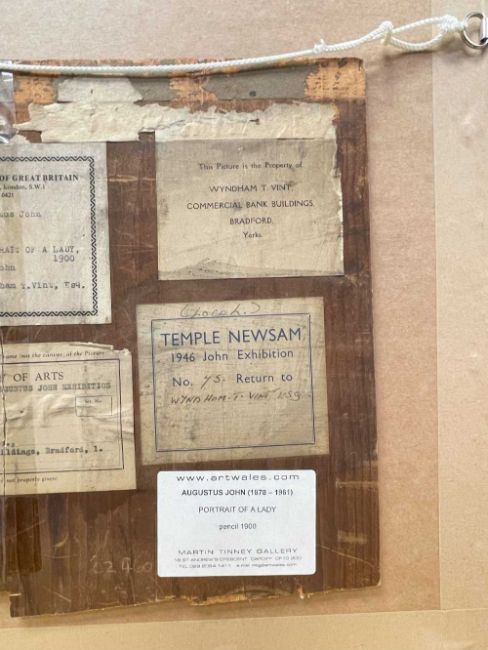 OF GREAT BRITAIN
London, S.W.1
0421
us John
RAIT OF A LADY,
1900
ohn
ham T.Vint, Esq.
This Picture is the Property of
WYNDHAM T. VINT,
COMMERCIAL BANK BUILDINGS,
BRADFORD.
Yorks.
TEMPLE NEWSAM
1946 John Exhibition
No. 45. Return to
WYNDHAM. T. VINT. ESQ.
Frame (not the canvas) of the Picture
Y OF ARTS
AUGUSTUS JOHN EXHIBITION
ildings, Bradford, 1.
not properly given
www.artwales.com
AUGUSTUS JOHN (1878 – 1961)
PORTRAIT OF A LADY
pencil 1900
MARTIN TINNEY GALLERY
18 ST ANDREW'S CRESCENT CARDIFF CF10 3DD